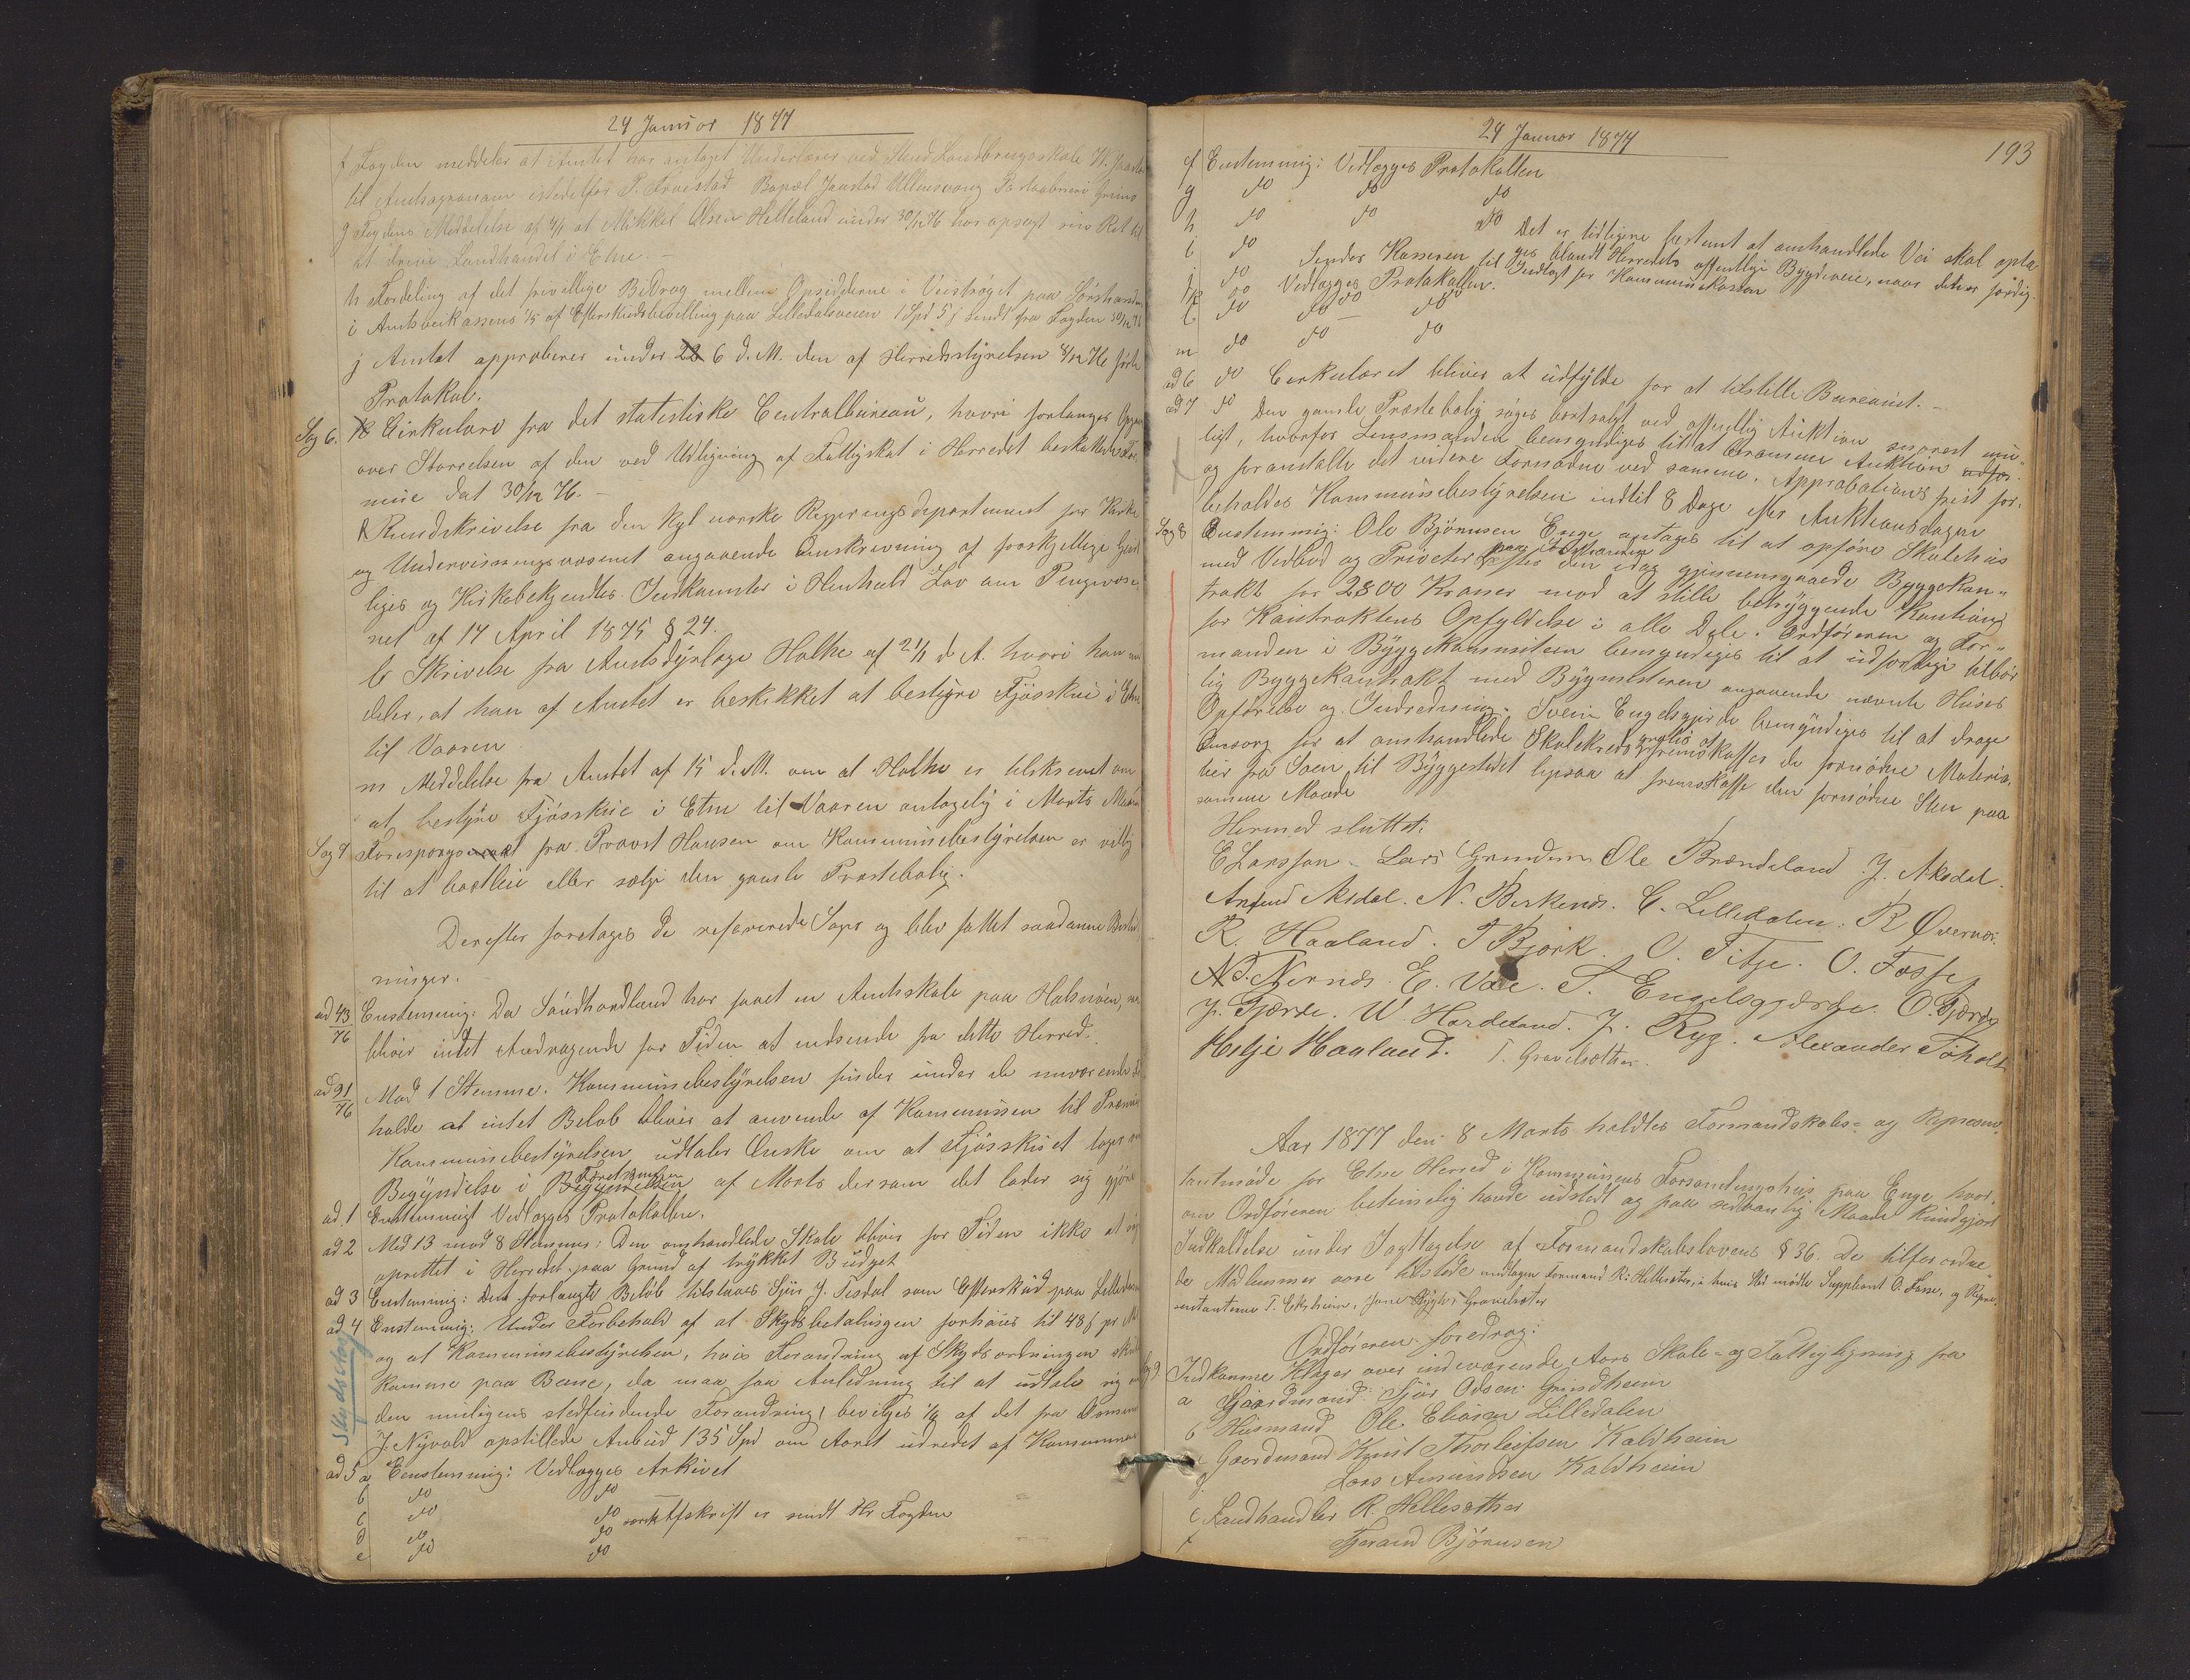 24 Januar 1877
f Fogden meddeler at Amtet har antaget Underlærer ved Stend Landbrugsskole W.
til Amtsagronom istedetfor P. Bopæl Jaastad Ullensvang
g Fogdens Meddelelse af 4/1 at Mikkal Olsen Helleland under 30/12 76 har opsagt sin Ret til
at drive Landhandel i Etne. -
h Fordeling af det frivillige Bidrag mellem Opsidderne i Veistrøget paa
i Amtsveikassens 1/5 af Efterskudsbevilling paa Lilledalsveien 1 Spd 5 ſ sendt fra Fogden 30/12 76
j Amtet approberer under 6 d. M. den af Herredsstyrelsen 8/12 76 førte
Protokol.
Sag 6. Cirkulære fra det statistiske Centralbureau, hvori forlanges
over Størrelsen af den ved Udligning af Fattigskat i Herredet beskattede
dat 30/12 76. -
k Rundskrivelse fra den Kgl norske Regjerings departement for Kirke
og Undervisningsvæsenet angaaende Omskrivning af forskjellige Geist-
liges og Kirkebetjentes Indkomster i Henhold Lov om Pengevæse-
net af 17 April 1875 § 24.
l Skrivelse fra Amtsdyrlæge Holthe af 2/1 d. A. hvori han
deler, at han af Amtet er beskikket at bestyre Fjøsskue i Etne
til Vaaren
m Meddelelse fra Amtet af 15 d. M. om at Holthe er tilskrevet om
at bestyre Fjøsskue i Etne til Vaaren antagelig i Marts
Sag 7 Forespørgsel fra Provst Hansen om Kommunebestyrelsen er villig
til at bortleie eller sælge den gamle Præstebolig.
Derefter foretages de refererede Sager og blev fattet saadanne
ninger.
ad 43/76 Enstemmig: Da Søndhordland har faaet en Amtsskole paa Halsnøen,
bliver intet Andragende for Tiden at indsende fra dette Herred.
ad 91/76 Mod 1 Stemme. Kommunebestyrelsen finder under de nuværende
holde at intet Beløb bliver at anvende af Kommunen til
Kommunebestyrelsen udtaler Ønske om at Fjøsskuet tages
Begyndelse i Begyndelsen af Marts dersom det lader sig gjøre
ad 1 Enstemmigt Vedlægges Protokollen.
ad 2 Med 13 mod 8 Stemmer: Den omhandlede Skole bliver for Tiden ikke at
oprettet i Herredet paa Grund af trykket Budget
ad 3 Enstemmig: Det forlangte Beløb tilstaaes Sjur J. Tesdal som Efterskud paa
ad 4 Enstemmig: Under Forbehold af at Skydsbetalingen forhøies til 48 ſ pr
og at Kommunebestyrelsen, hvis Forandring af Skydsordningen
komme paa Bane, da maa faa Anledning til at udtale sig
den muligens stedfindende Forandring, bevilges 1/4 af det fra
J. Nyvold opstillede Anbud 135 Spd om Aaret udredet af Kommunen
Skydsstag
ad 5 a Eenstemmig: Vedlægges Arkivet
b do do
c do do Afskrift er sendt Hr Fogden
d do do
e do do
24 Januar 1877
193
f Enstemmig: Vedlægges Protokollen
g do do do
h do do do
i do Det er tidligere bestemt at omhandlede Vei skal opta
ges blandt Herredets offentlige Bygdeveie, naar den er færdig.
j do Sendes Kasseren til Indtægt for Kommunekassen
k do Vedlægges Protokollen.
l do do do
m do do do
ad 6 do Cirkulæret bliver at udfylde for at tilstille Bureauet. -
ad 7 do Den gamle Præstebolig søges bortsolgt ved offentlig Auktion snarest mu-
ligt, hvorfor Lensmanden bemyndiges til at beramme Auktion
og foranstalte det videre Fornødne ved samme. Approbations frist for-
beholdes Kommunebestyrelsen indtil 8 Dage efter Auktionsdagen
Sag 8 Enstemmig: Ole Bjørnsen Enge antages til at opføre Skolehus
med Vedbod og Priveter efter den idag gjennemgaaede Byggekon-
trakt for 2800 Kroner mod at stille betryggende Kaution
for Kontraktens Opfyldelse i alle Dele. Ordføreren og For-
manden i Byggekommiteen bemyndiges til at udfærdige tilbør-
lig Byggekontrakt med Bygmesteren angaaende nævnte Huses
Opførelse og Indredning. Svein Engelsgjerde bemyndiges til at drage
Omsorg for at omhandlede Skolekreds gratis fremskaffer de fornødne Materia-
lier fra Søen til Byggestedet ligesaa at fremskaffe den fornødne Sten paa
samme Maade
Hermed sluttet.
E Larssen. Lars Grindem Ole Brændeland J. Aksdal.
Anfind Aksdal. N. Birkenes. C. Lilledalen. R Øvernæs.
R. Haaland. T Bjørk. O. Fitje. O. Fosse
N. T. Nernæs. E. Vae. S. Engelsgjærde. O. Gjærde
J. Gjærde. W Hardeland. J. Ryg. Alexander Tøholt
Helje Haaland. T. Gravelsæther.
Aar 1877 den 8 Marts holdtes Formandskabs- og Repræsen-
tantmøde for Etne Herred i Kommunens Forsamlingshus paa Enge hvor-
om Ordføreren betimelig havde udstedt og paa sedvanlig Maade kundgjort
Indkaldelse under Iagttagelse af Formandskabslovens § 36. De tilforordne-
de Medlemmer vare tilstede undtagen Formand R. Hellesæter, i hvis Sted mødte Suppleant O. Fosse, og Repræ-
sentanterne T. Ekrheim, Gravelsæter
Ordføreren foredrog:
Sag 9. Indkomne Klager over indeværende Aars Skole- og Fattigligning fra
a Gaardmand Sjur Odsen Grindheim
b Husmand Ole Eliasen Lilledalen
c Gaardmand Knut Thorleifsen Kaldheim
d Lars Amundsen Kaldheim
e Landhandler R. Hellesæther
f Tjerand Bjørnsen